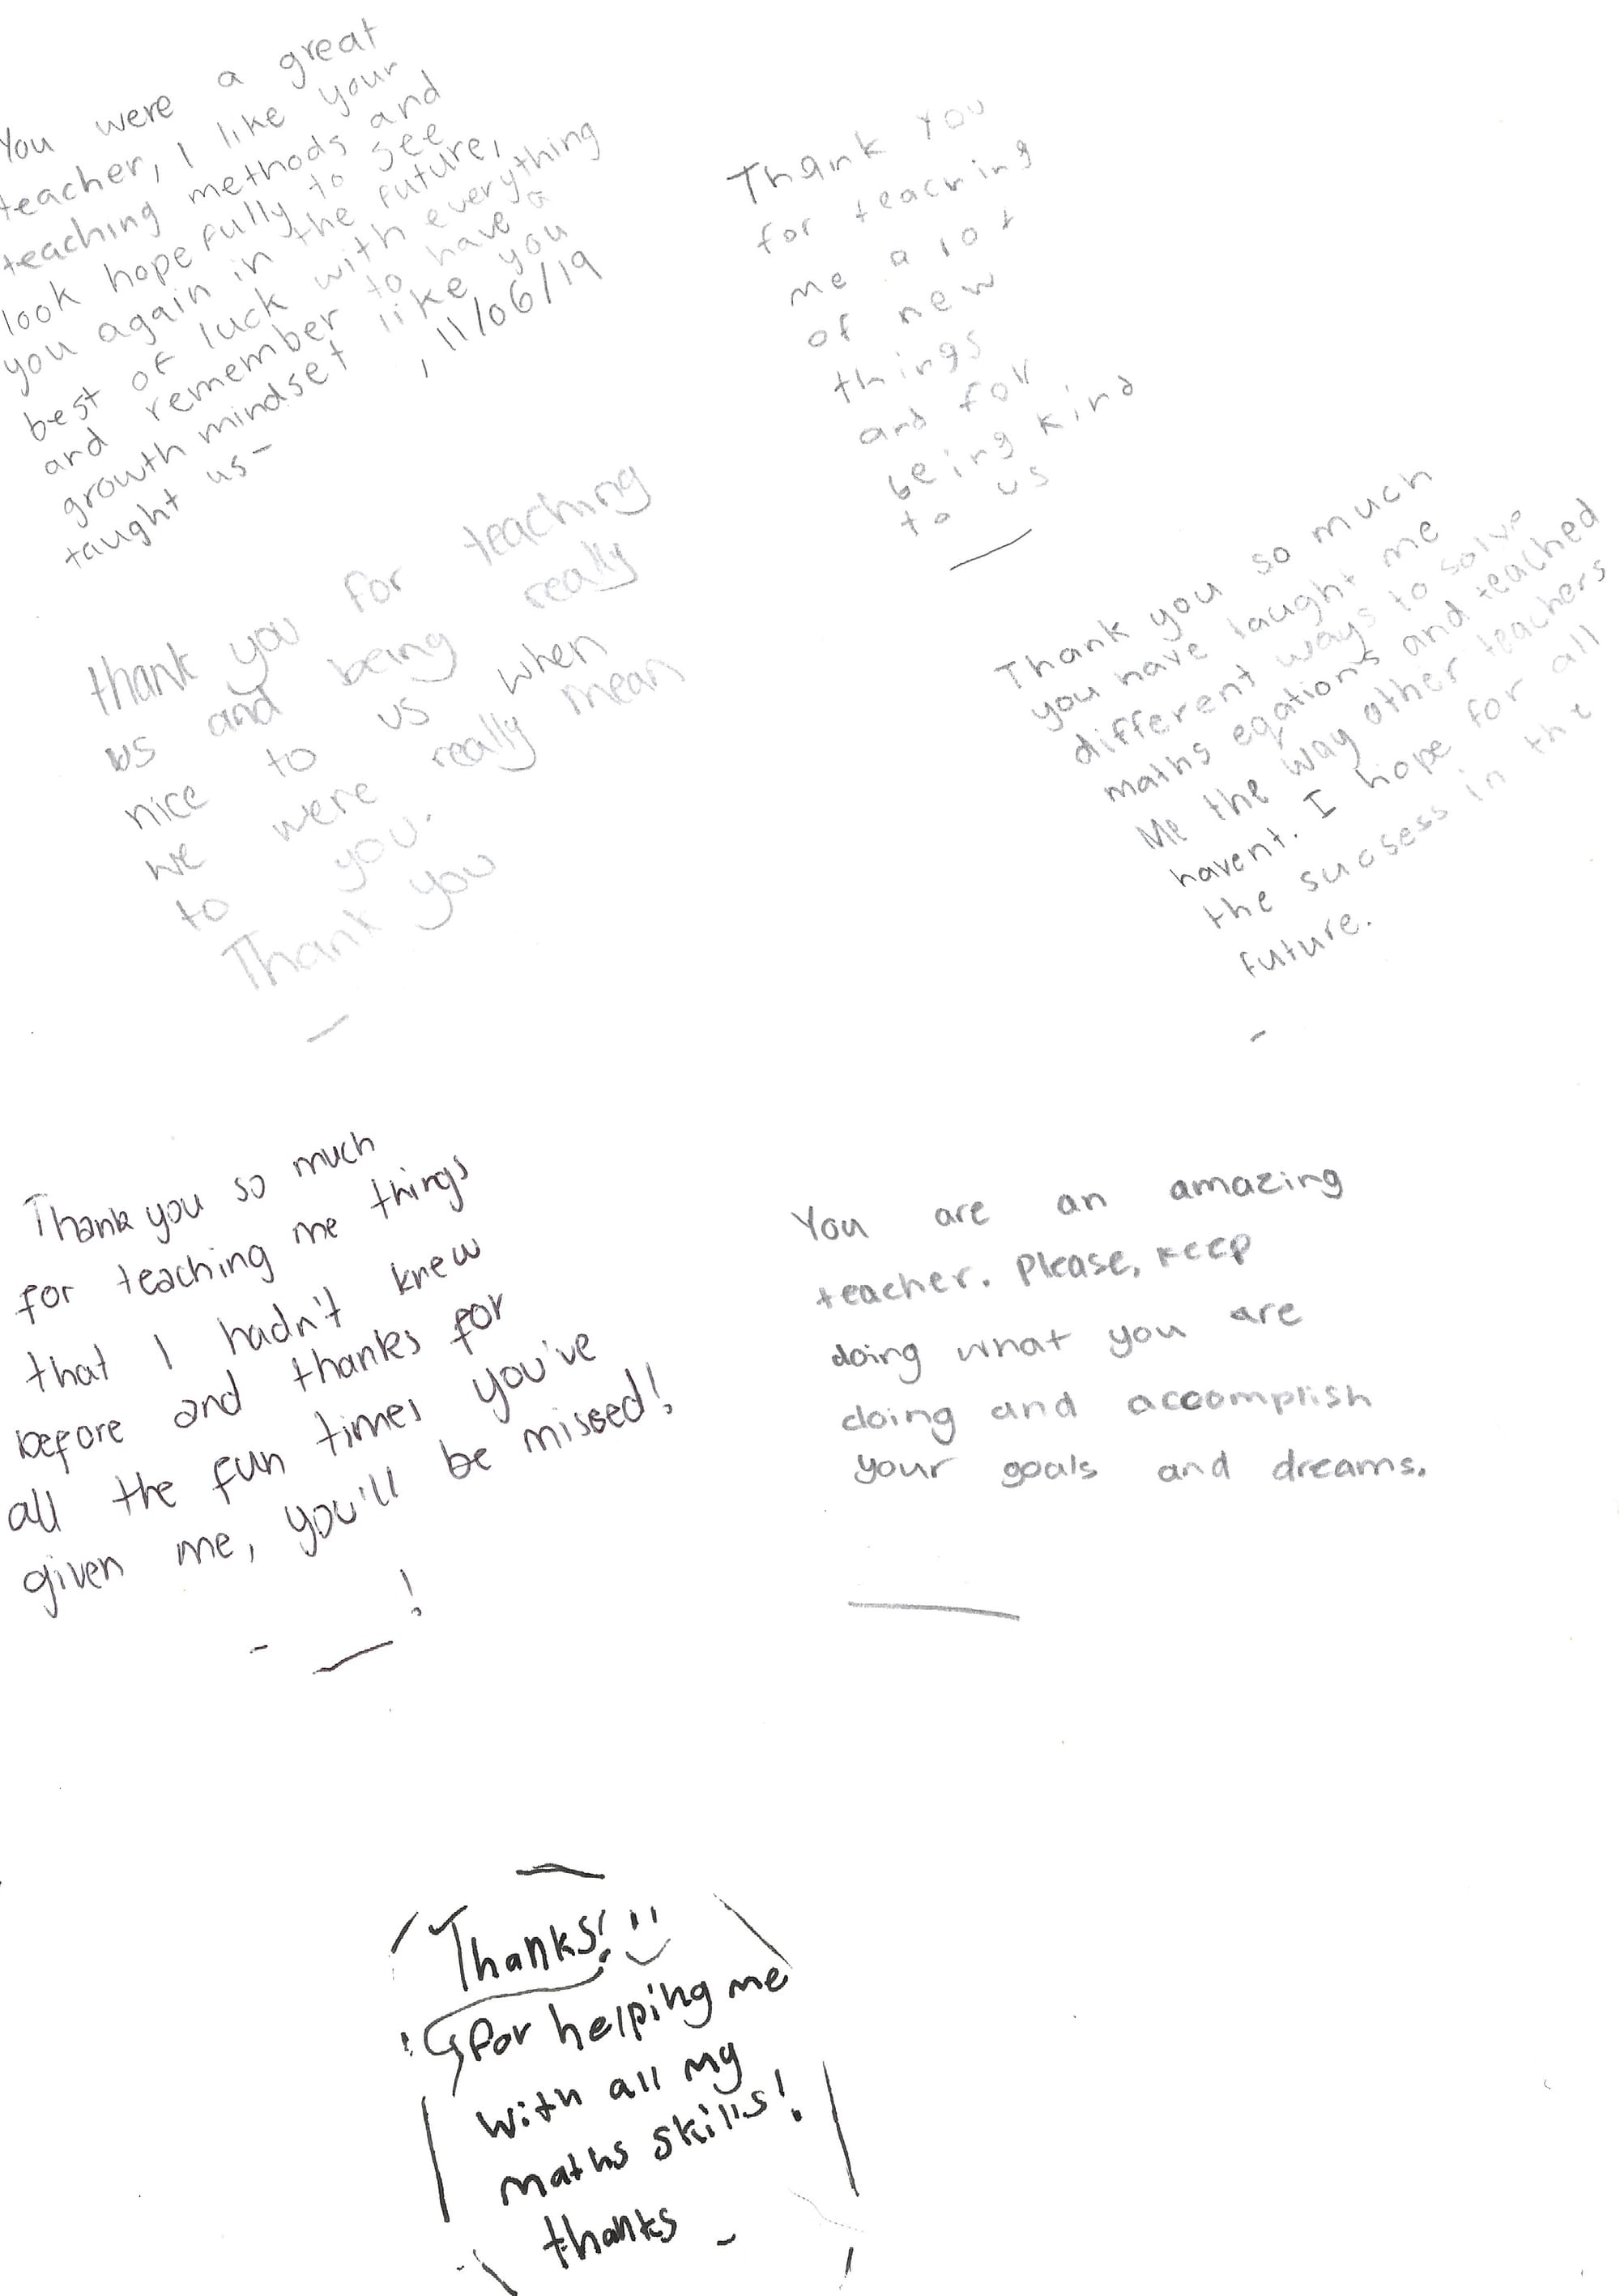 You were a great
teacher, I like your
teaching methods and
look hopefully to see
you again in the future,
best of luck with everything
and remember to have a
growth mindset like you
taught us- , 11/06/19
Thank you
for teaching
me a lot
of new
things
and for
being kind
to us
thank you for teaching
us and being really
nice to us when
we were really mean
to you.
Thank you
Thank you so much
you have taught me
different ways to solve
maths eqations and teached
Me the way other teachers
havent. I hope for all
the sucsess in the
future.
-
Thank you so much
for teaching me things
that I hadn't knew
before and thanks for
all the fun times you've
given me, you'll be missed!
- !
You are an amazing
teacher. Please, keep
doing what you are
doing and accomplish
your goals and dreams.
Thanks!
for helping me
with all my
maths skills!
thanks -